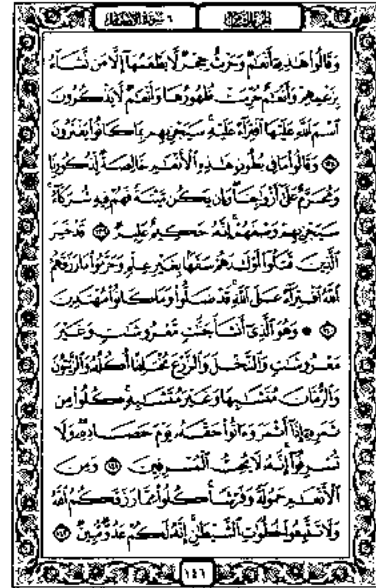 الجزء الثامن ٦ سورة الأنعام
وَقَالُوا۟ هَٰذِهِۦٓ أَنْعَٰمٌ وَحَرْثٌ حِجْرٌ لَّا يَطْعَمُهَآ إِلَّا مَن نَّشَآءُ
بِزَعْمِهِمْ وَأَنْعَٰمٌ حُرِّمَتْ ظُهُورُهَا وَأَنْعَٰمٌ لَّا يَذْكُرُونَ
ٱسْمَ ٱللَّهِ عَلَيْهَا ٱفْتِرَآءً عَلَيْهِ سَيَجْزِيهِم بِمَا كَانُوا۟ يَفْتَرُونَ
١٣٨ وَقَالُوا۟ مَا فِى بُطُونِ هَٰذِهِ ٱلْأَنْعَٰمِ خَالِصَةٌ لِّذُكُورِنَا
وَمُحَرَّمٌ عَلَىٰٓ أَزْوَٰجِنَا وَإِن يَكُن مَّيْتَةً فَهُمْ فِيهِ شُرَكَآءُ
سَيَجْزِيهِمْ وَصْفَهُمْ إِنَّهُۥ حَكِيمٌ عَلِيمٌ ١٣٩ قَدْ خَسِرَ
ٱلَّذِينَ قَتَلُوٓا۟ أَوْلَٰدَهُمْ سَفَهًۢا بِغَيْرِ عِلْمٍ وَحَرَّمُوا۟ مَا رَزَقَهُمُ
ٱللَّهُ ٱفْتِرَآءً عَلَى ٱللَّهِ قَدْ ضَلُّوا۟ وَمَا كَانُوا۟ مُهْتَدِينَ
١٤٠ ۞ وَهُوَ ٱلَّذِىٓ أَنشَأَ جَنَّٰتٍ مَّعْرُوشَٰتٍ وَغَيْرَ
مَعْرُوشَٰتٍ وَٱلنَّخْلَ وَٱلزَّرْعَ مُخْتَلِفًا أُكُلُهُۥ وَٱلزَّيْتُونَ
وَٱلرُّمَّانَ مُتَشَٰبِهًا وَغَيْرَ مُتَشَٰبِهٍ كُلُوا۟ مِن
ثَمَرِهِۦٓ إِذَآ أَثْمَرَ وَءَاتُوا۟ حَقَّهُۥ يَوْمَ حَصَادِهِۦ وَلَا
تُسْرِفُوٓا۟ إِنَّهُۥ لَا يُحِبُّ ٱلْمُسْرِفِينَ ١٤١ وَمِنَ
ٱلْأَنْعَٰمِ حَمُولَةً وَفَرْشًا كُلُوا۟ مِمَّا رَزَقَكُمُ ٱللَّهُ
وَلَا تَتَّبِعُوا۟ خُطُوَٰتِ ٱلشَّيْطَٰنِ إِنَّهُۥ لَكُمْ عَدُوٌّ مُّبِينٌ ١٤٢
١٤٦